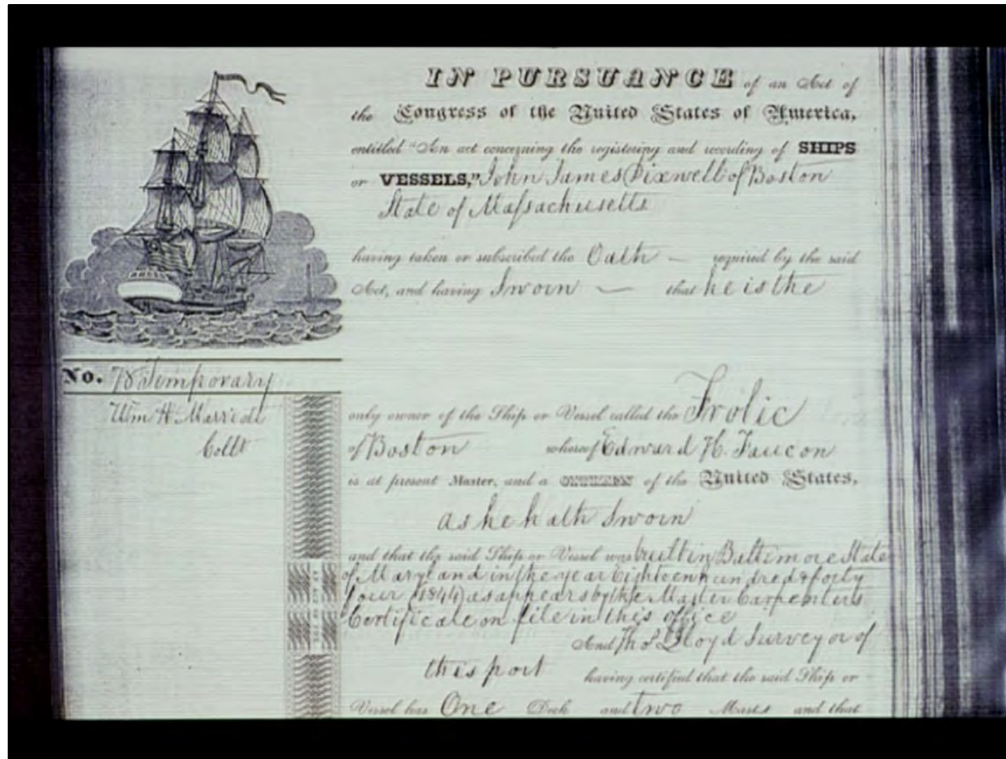 IN PURSUANCE of an Act of
the Congress of the United States of America,
entitled "An act concerning the registering and recording of SHIPS
or VESSELS," John James Dixwell of Boston
State of Massachusetts
having taken or subscribed the Oath — required by the said
Act, and having Sworn — that he is the
No. 78 Temporary
Wm H Marriott
Collr
only owner of the Ship or Vessel called the Frolic
of Boston whereof Edward H. Faucon
is at present Master, and a CITIZEN of the United States,
as he hath Sworn
and that the said Ship or Vessel was built in Baltimore State
of Maryland in the year Eighteen hundred & forty
four 1844 as appears by the Master Carpenters
Certificate on file in this office
And Thos Lloyd Surveyor of
this port having certified that the said Ship or
Vessel has One Deck and two Masts and that